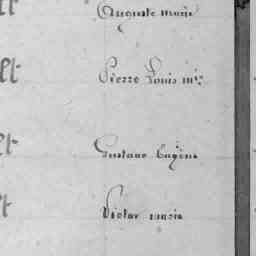 Auguste marie
Pierre Louis mie
Gustave Eugène
Victor marie